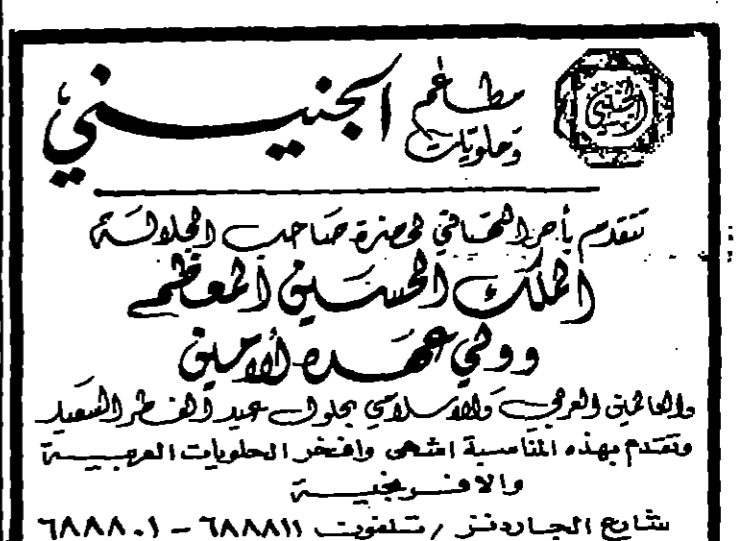 مطاعم
وحلويات
الجنيني
الجنيني
تتقدم بأحر التهاني لحضرة صاحب الجلالة
الملك الحسين المعظم
وولي عهده الأمين
والعالمين العربي والاسلامي بحلول عيد الفطر السعيد
وتقدم بهذه المناسبة اشهى وافخر الحلويات العربية
والافرنجية
شارع الجاردنز / تلفون ٦٨٨٨١١ - ٦٨٨٨٠١